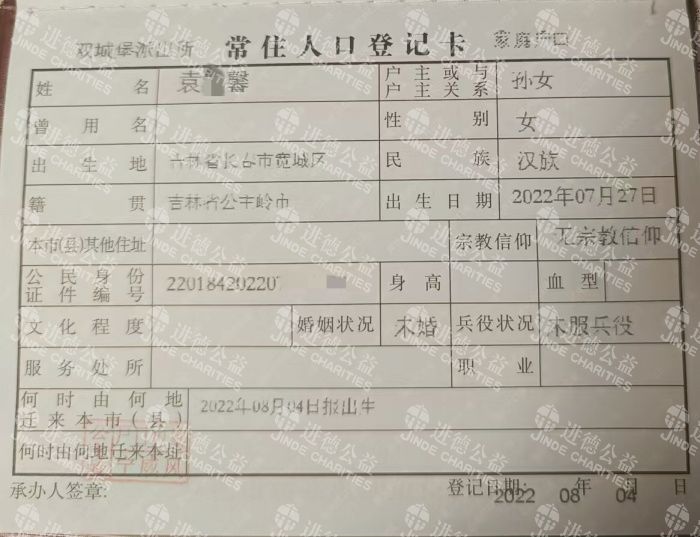 双城堡派出所 常住人口登记卡 家庭户口
姓名 袁 馨 户主或与户主关系 孙女
曾用名 性别 女
出生地 吉林省长春市宽城区 民族 汉族
籍贯 吉林省公主岭市 出生日期 2022年07月27日
本市(县)其他住址 宗教信仰 无宗教信仰
公民身份证件编号 22018420220 身高 血型
文化程度 婚姻状况 未婚 兵役状况 未服兵役
服务处所 职业
何时由何地迁来本市(县) 2022年08月04日报出生
何时由何地迁来本址
承办人签章: 登记日期: 2022 年 08 月 04 日
进德公益
JINDE CHARITIES